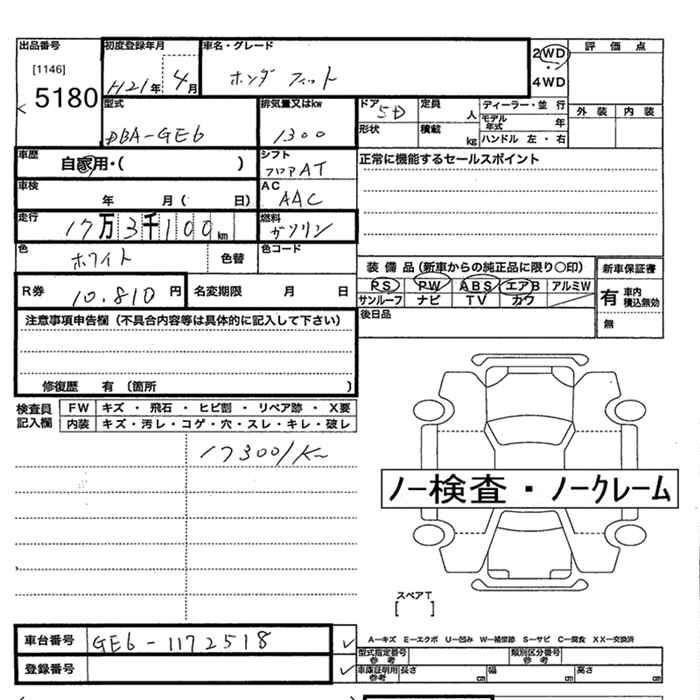 出品番号
[1146]
5180
初度登録年月
H21年 4月
車名・グレード
ホンダ フィット
2WD
・
4WD
評価点
外装 内装
型式
DBA-GE6
排気量又はkw
1300
ドア 5D
定員 人
形状
積載 kg
ディーラー・並 行
モデル年式 年
ハンドル 左・右
車歴
自家用・( )
シフト
フロアAT
正常に機能するセールスポイント
車検
年 月( 日)
AC
AAC
走行
17万3千100km
燃料
ガソリン
色
ホワイト
色替
色コード
装備品(新車からの純正品に限り○印)
PS PW ABS エアB アルミW
サンルーフ ナビ TV カワ
新車保証書
有 車内積込無効
無
R券
10.810円
名変期限 月 日
後日品
注意事項申告欄(不具合内容等は具体的に記入して下さい)
修復歴 有(箇所 )
検査員記入欄
FW キズ・飛石・ヒビ割・リペア跡・X要
内装 キズ・汚レ・コゲ・穴・スレ・キレ・破レ
ノー検査・ノークレーム
スペアT
[ ]
車台番号 GE6-1172518
登録番号
A―キズ E―エクボ U―凹み W―補修跡 S―サビ C―腐食 XX―交換済
型式指定番号 参考
類別区分番号 参考
車庫証明用 参考
長さ cm 幅 cm 高さ cm